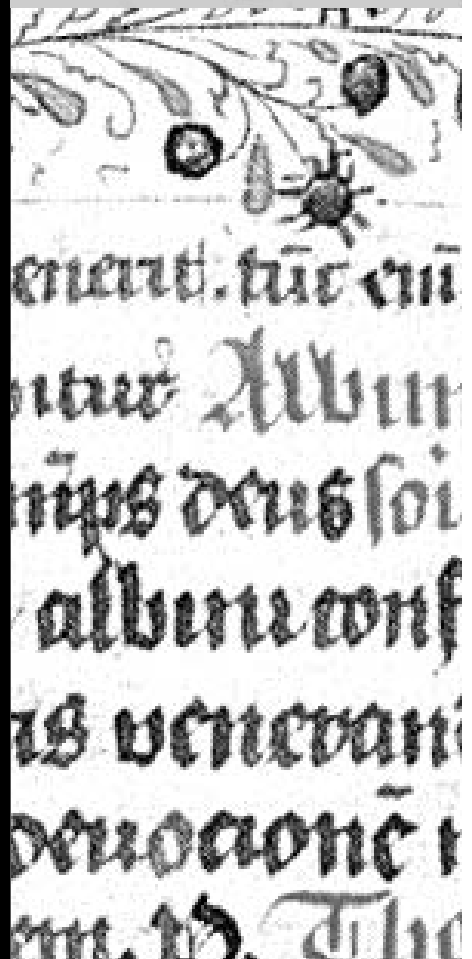 enerit. tūc eiū
itur Albin
mp̄s deus soi
albinu conf
as veneran
deuocionē
em. P. The